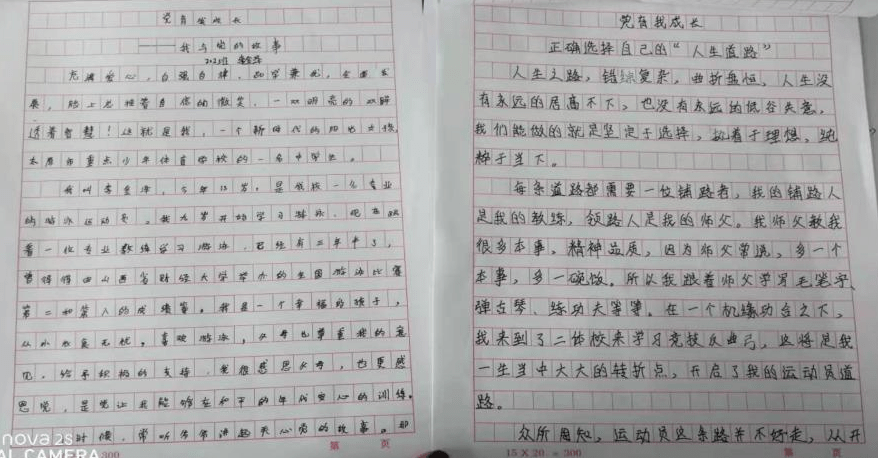 党育我成长
——我与党的故事
充满爱心,自强自律,品学兼优,全面发
展,脸上总挂着自信的微笑,一双明亮的双眸
透着智慧!这就是我,一个新时代的阳光女孩,
太原市重点少年体育学校的一名中学生。
我叫李,今年13岁,是我校一名专业
的游泳运动员。我九岁开始学习游泳,现在跟
着一位专业教练学习游泳,已经有三年半了,
曾获得由山西省财经大学举办的全国游泳比赛
第二和第八的成绩等。我是一个幸福的孩子,
从小衣食无忧,喜欢游泳,父母也尊重我的意
见,给予积极的支持,我很感恩父母,也更感
恩党,是党让我能够在和平的年代安心的训练。
时候,常听爷爷讲起关心党的故事。那
nova 2s
AL CAMERA
300
第 页
党育我成长
正确选择自己的“人生道路”
人生之路,错综复杂,曲折盘恒,人生没
有永远的居高不下,也没有永远的低谷失意,
我们能做的就是坚定于选择,执着于理想,纯
粹于当下。
每条道路都需要一位铺路者,我的铺路人
是我的教练,领路人是我的师父。我师父教我
很多本事,精神品质,因为师父常说,多一个
本事,多一碗饭。所以我跟着师父学写毛笔字、
弹古琴、练功夫等等。在一个机缘功合之下,
我来到了二体校来学习竞技反曲弓,这将是我
一生当中大大的转折点,开启了我的运动员道
路。
众所周知,运动员这条路并不好走,从开
15×20=300
第 页